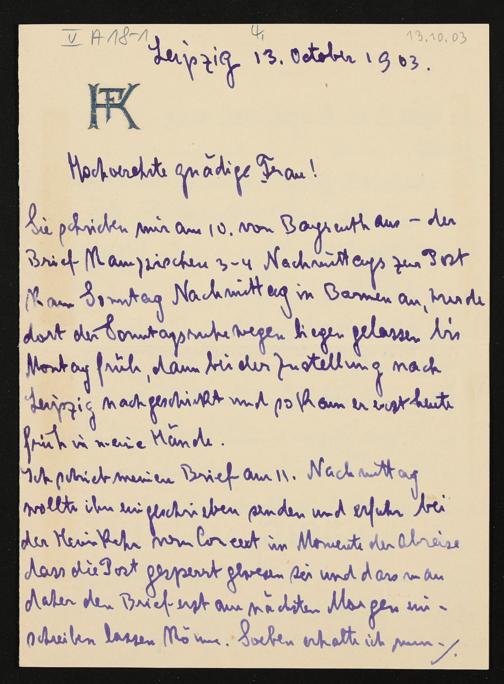 V A 18-1 4, 13.10.03
Leipzig 13. October 1903.
HFK
Hochverehrte gnädige Frau!
Sie schrieben mir am 10. von Bayreuth aus – der
Brief kam zwischen 3-4 Nachmittags zur Post
kam Sonntag Nachmittag in Barmen an, wurde
dort der Sonntagsruhe wegen liegen gelassen bis
Montag früh, dann bei der Zustellung nach
Leipzig nachgeschickt und so kam er erst heute
früh in meine Hände.
Ich schrieb meinen Brief am 11. Nachmittag
wollte ihn eingeschrieben senden und erfuhr bei
der Heimkehr vom Concert im Momente der Abreise
dass die Post gesperrt gewesen sei und dass man
daher den Brief erst am nächsten Morgen ein-
schreiben lassen könne. Soeben erhalte ich nun